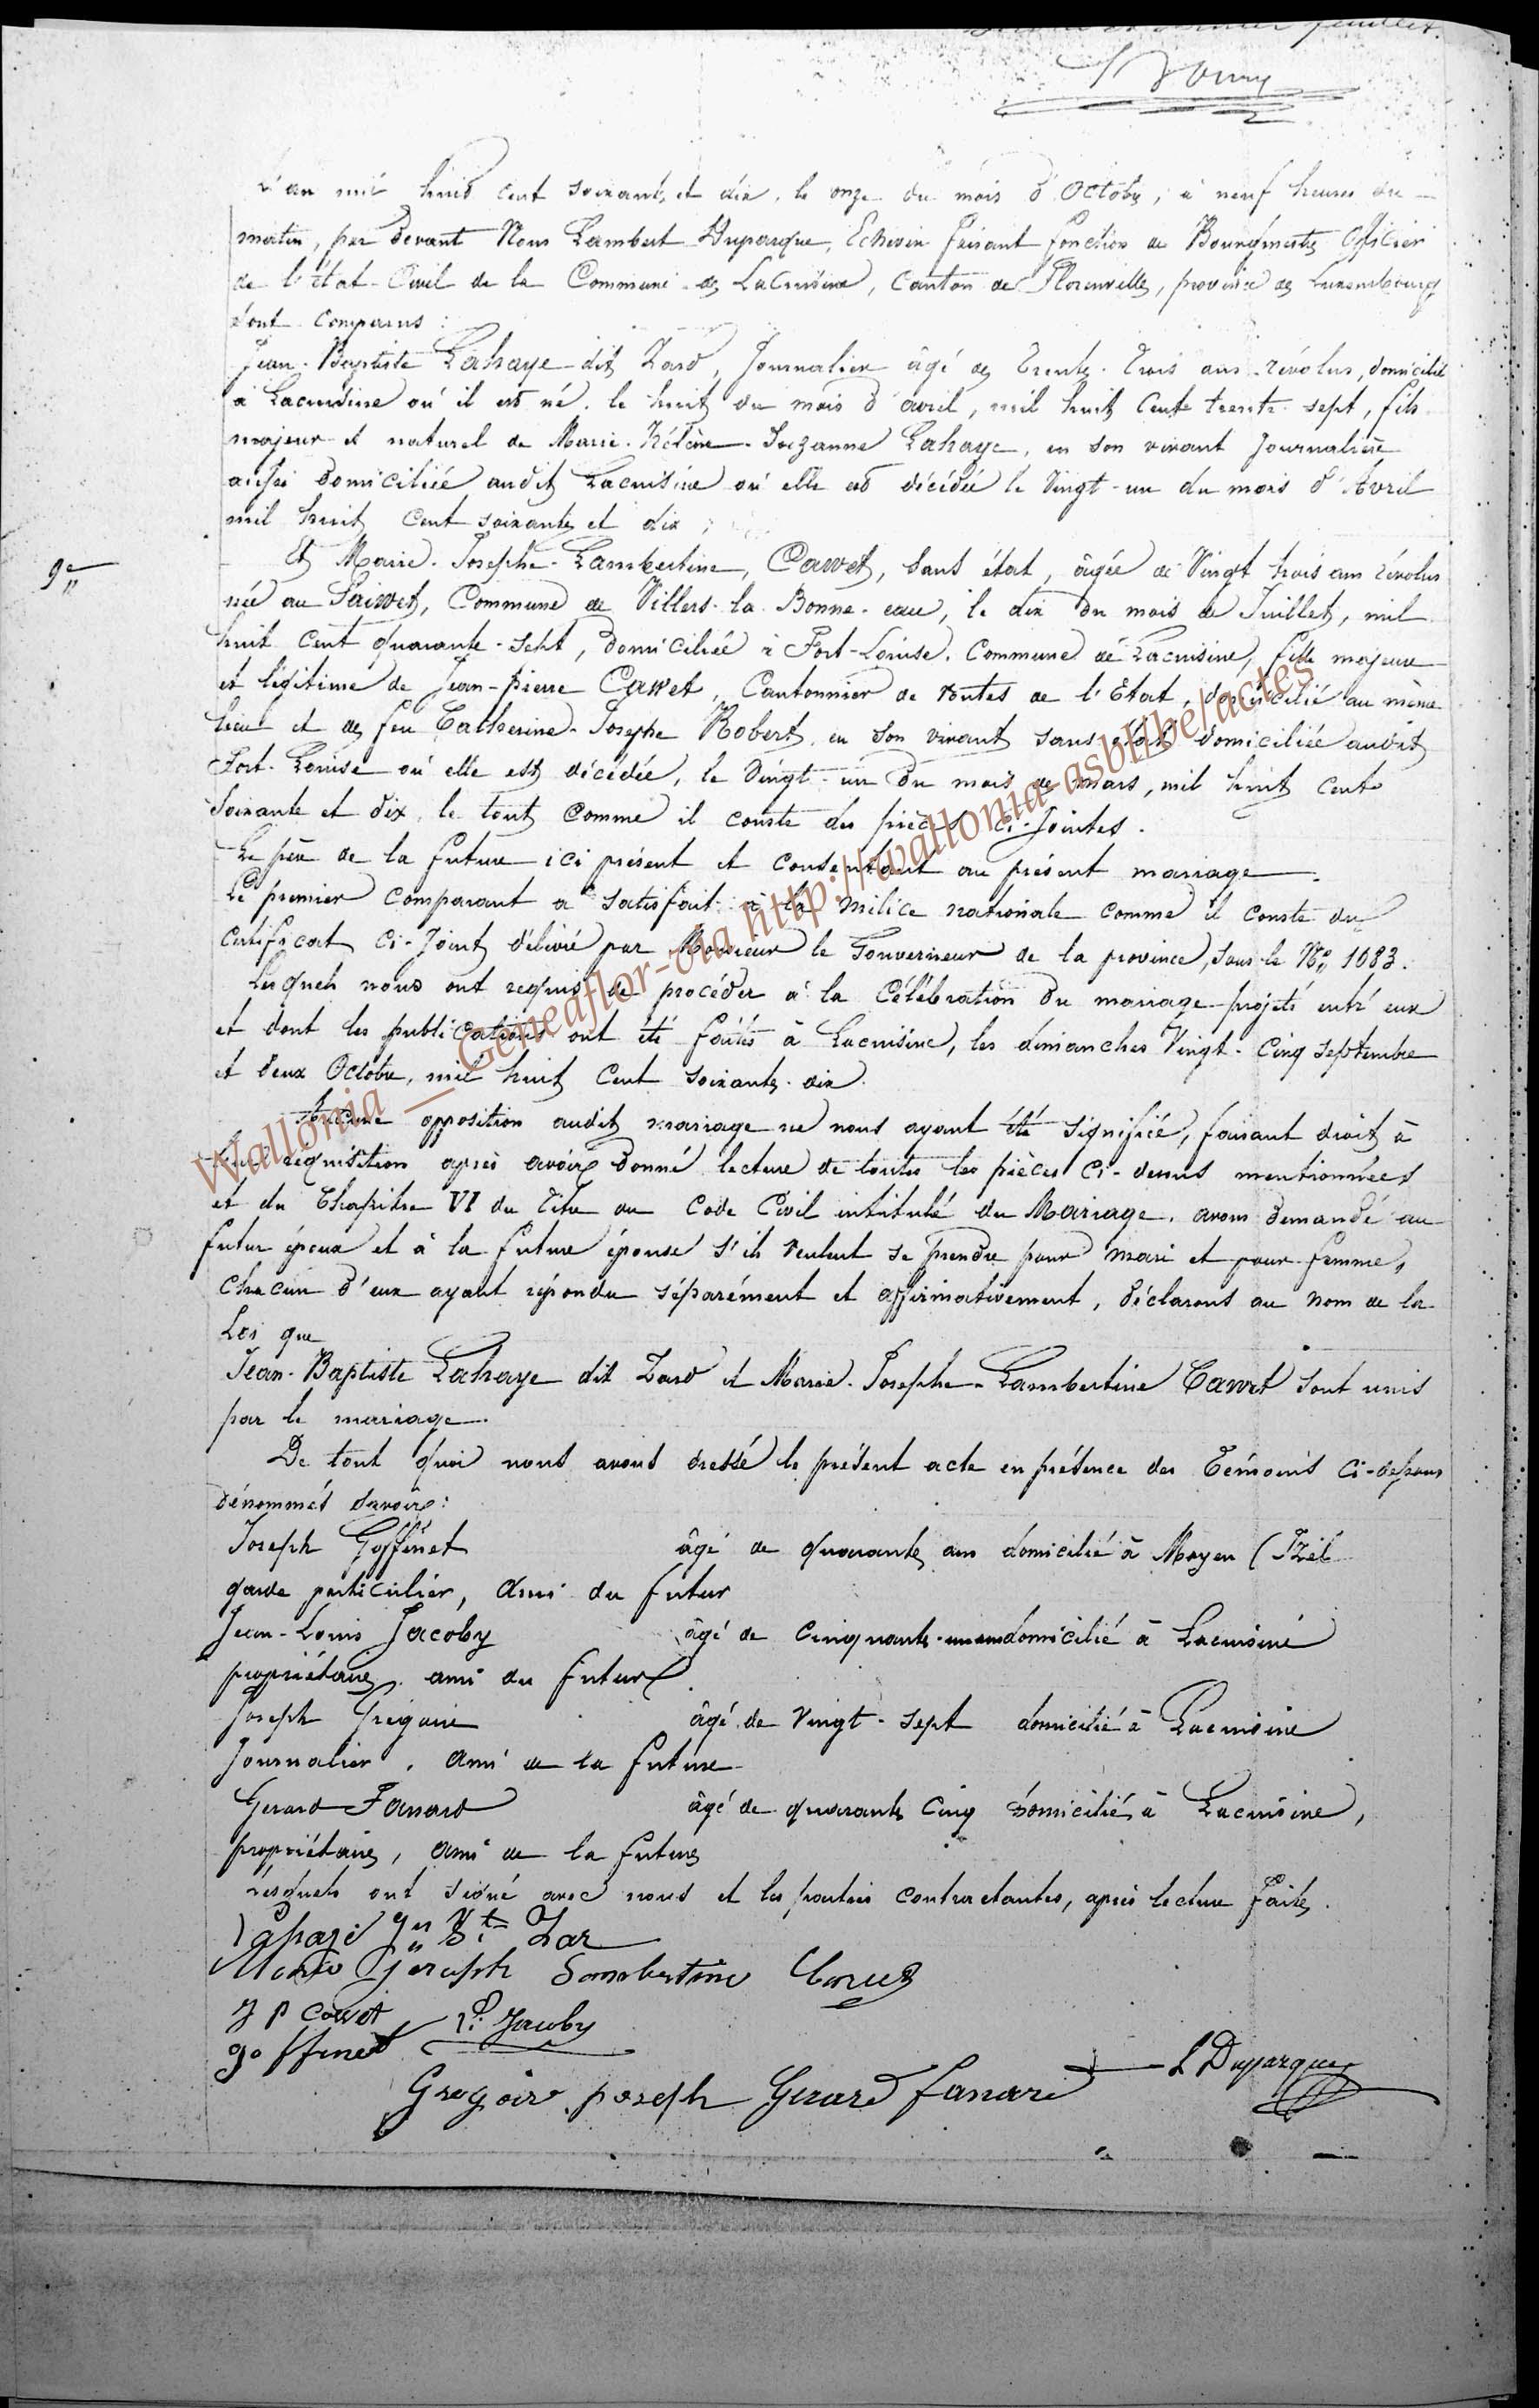 feuillet.
L'an mil huit cent soixante et dix, le onze du mois d'Octobre, à neuf heures du
matin, par devant Nous Lambert Duparque, Echevin faisant fonction de Bourgmestre Officier
de l'état-Civil de la Commune de LaCuisine, Canton de Florenville, province de Luxembourg
sont comparus :
Jean-Baptiste Lahaye dit Zard, Journalier âgé de Trente-Trois ans révolus, domicilié
à Lacuisine où il est né, le huit du mois d'avril, mil huit Cent trente-sept, fils
majeur et naturel de Marie-Hélène-Suzanne Lahaye, en son vivant Journalière
aussi domiciliée audit Lacuisine où elle est décédée le Vingt-un du mois d'Avril
mil huit Cent soixante et dix ;
9e
Et Marie-Josephe-Lambertine, Cawet, sans état, âgée de Vingt trois ans révolus
née au Sainvet, Commune de Villers-la-Bonne-eau, le dix du mois de Juillet, mil
huit Cent quarante-sept, domiciliée à Fort-Louise, Commune de Lacuisine, fille majeure
et légitime de Jean-pierre Cawet, Cantonnier de routes de l'Etat, domicilié au même
lieu et de feu Catherine-Josephe Robert, en son vivant sans état domiciliée audit
Fort-Louise où elle est décédée, le Vingt-un du mois de mars, mil huit Cent
Soixante et dix, le tout comme il conste des pièces ci-jointes.
Le père de la future ici présent et consentant au présent mariage.
Le premier comparant a satisfait à la milice nationale comme il conste du
Certificat Ci-Joint délivré par Monsieur le Gouverneur de la province, sous le No 1083.
Lesquels nous ont requis de procéder à la Célébration du mariage projeté entr'eux
et dont les publications ont été faites à Lacuisine, les dimanches Vingt-Cinq Septembre
et deux Octobre, mil huit Cent soixante-dix.
Aucune opposition audit mariage ne nous ayant été signifiée, faisant droit à
leur réquisition après avoir donné lecture de toutes les pièces Ci-dessus mentionnées
et du Chapitre VI du Titre du Code Civil intitulé du Mariage, avons demandé au
futur époux et à la future épouse s'ils veulent se prendre pour mari et pour femme,
Chacun d'eux ayant répondu séparément et affirmativement, déclarons au nom de la
Loi que
Jean-Baptiste Lahaye dit Zard et Marie-Josephe-Lambertine Cawet sont unis
par le mariage.
De tout quoi nous avons dressé le présent acte en présence des Témoins Ci-dessous
dénommés savoir :
Joseph Goffinet âgé de quarante ans domicilié à Moyen (Izel
garde particulier, ami du futur
Jean-Louis Jacoby âgé de Cinquante-un ans domicilié à Lacuisine
propriétaire, ami du futur
Joseph Grégoire âgé de Vingt-sept domicilié à Lacuisine
Journalier, ami de la future
Gerard Fanard âgé de quarante Cinq domicilié à Lacuisine,
propriétaire, ami de la future
Lesquels ont signé avec nous et les parties contractantes, après lecture faite.
Jn Bte Zar
Marie Joseph Lambertine Cawet
J P Cawet Jacoby
goffinet
L Duparque
Gregoire joseph Gerard fanard
Wallonia_Geneaflor-ola http://wallonia-asbl.be/actes